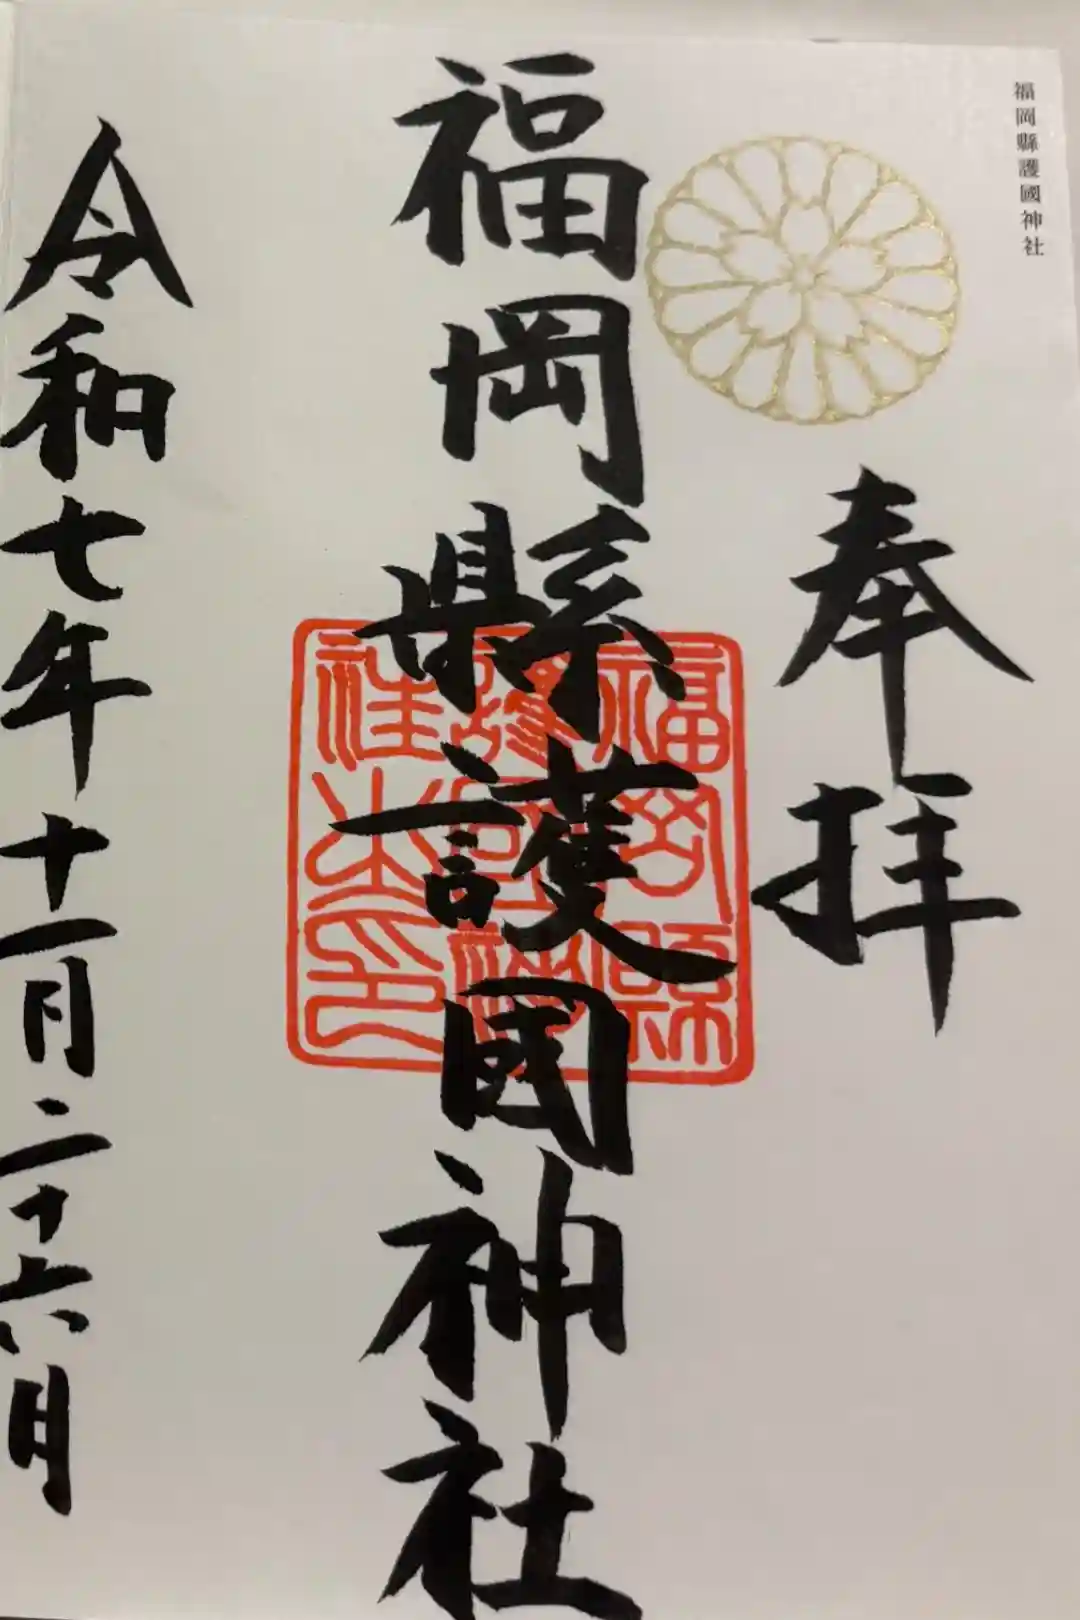 福岡縣護國神社
奉拝
福岡縣護國神社
福岡縣
護國神
社之印
令和七年十一月二十六日